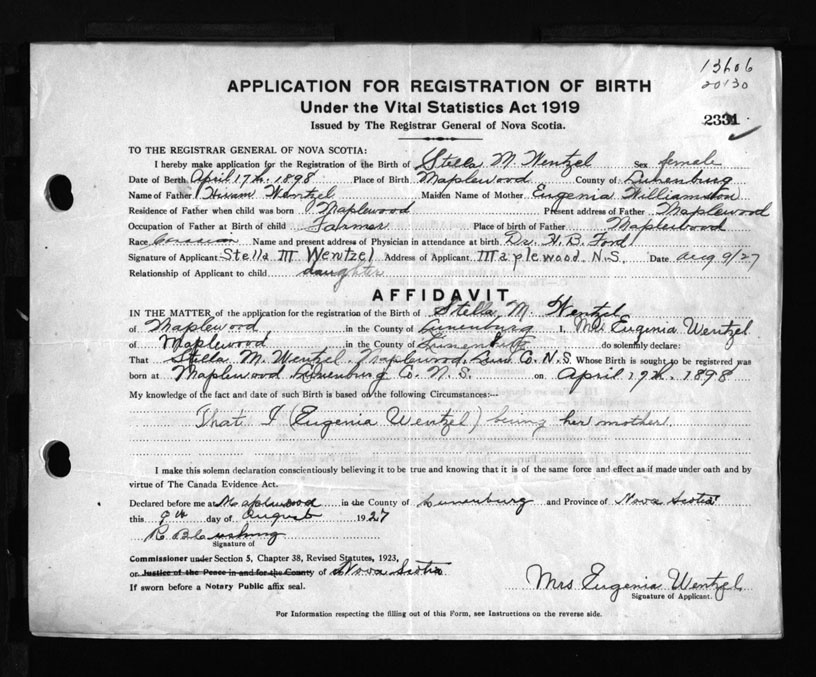 13606
20130
APPLICATION FOR REGISTRATION OF BIRTH
Under the Vital Statistics Act 1919
2331
Issued by The Registrar General of Nova Scotia.
TO THE REGISTRAR GENERAL OF NOVA SCOTIA:
I hereby make application for the Registration of the Birth of Stella M. Wentzel Sex female
Date of Birth April 17th. 1898 Place of Birth Maplewood County of Lunenburg
Name of Father Hiram Wentzel Maiden Name of Mother Eugenia Williamston
Residence of Father when child was born Maplewood Present address of Father Maplewood
Occupation of Father at Birth of child Farmer Place of birth of Father Maplewood
Race Name and present address of Physician in attendance at birth Dr. H. B. Ford
Signature of Applicant Stella M Wentzel Address of Applicant Maplewood N.S. Date Aug 9/27
Relationship of Applicant to child daughter
AFFIDAVIT
IN THE MATTER of the application for the registration of the Birth of Stella M. Wentzel
of Maplewood in the County of Lunenburg I, Mrs Eugenia Wentzel
of Maplewood in the County of Lunenburg do solemnly declare:
That Stella M. Wentzel, Maplewood, Lun Co. N.S. Whose Birth is sought to be registered was
born at Maplewood Lunenburg Co. N.S. on April 17th. 1898
My knowledge of the fact and date of such Birth is based on the following Circumstances:—
That I (Eugenia Wentzel) being her mother.
I make this solemn declaration conscientiously believing it to be true and knowing that it is of the same force and effect as if made under oath and by
virtue of The Canada Evidence Act.
Declared before me at Maplewood in the County of Lunenburg and Province of Nova Scotia
this 9th day of August 1927
Signature of
Commissioner under Section 5, Chapter 38, Revised Statutes, 1923,
or Justice of the Peace in and for the County of Nova Scotia
If sworn before a Notary Public affix seal.
Mrs Eugenia Wentzel
Signature of Applicant.
For Information respecting the filling out of this Form, see Instructions on the reverse side.